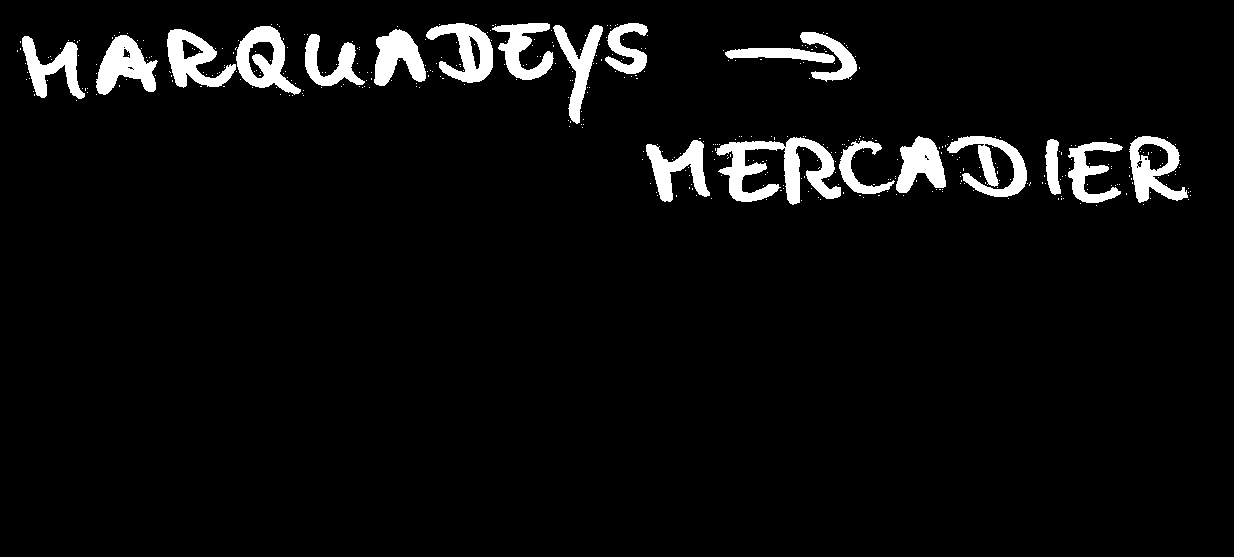 MARQUADEYS →
MERCADIER